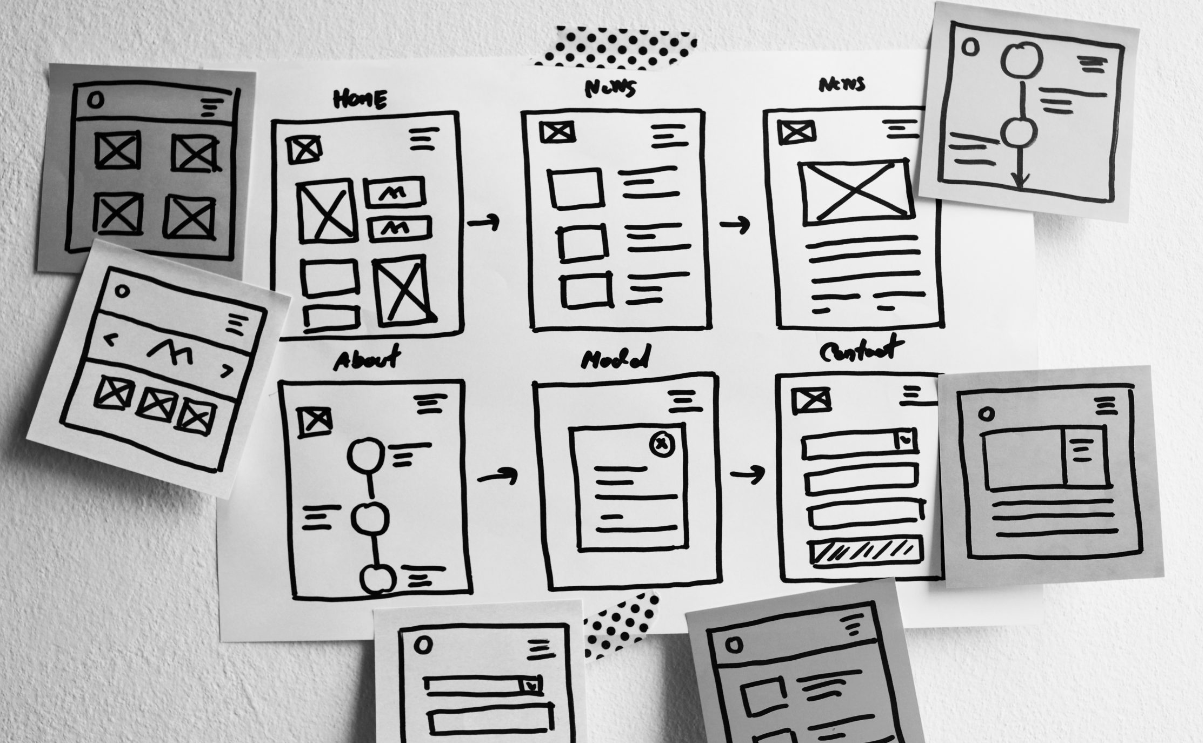 HOME
News
News
About
Modal
Contact